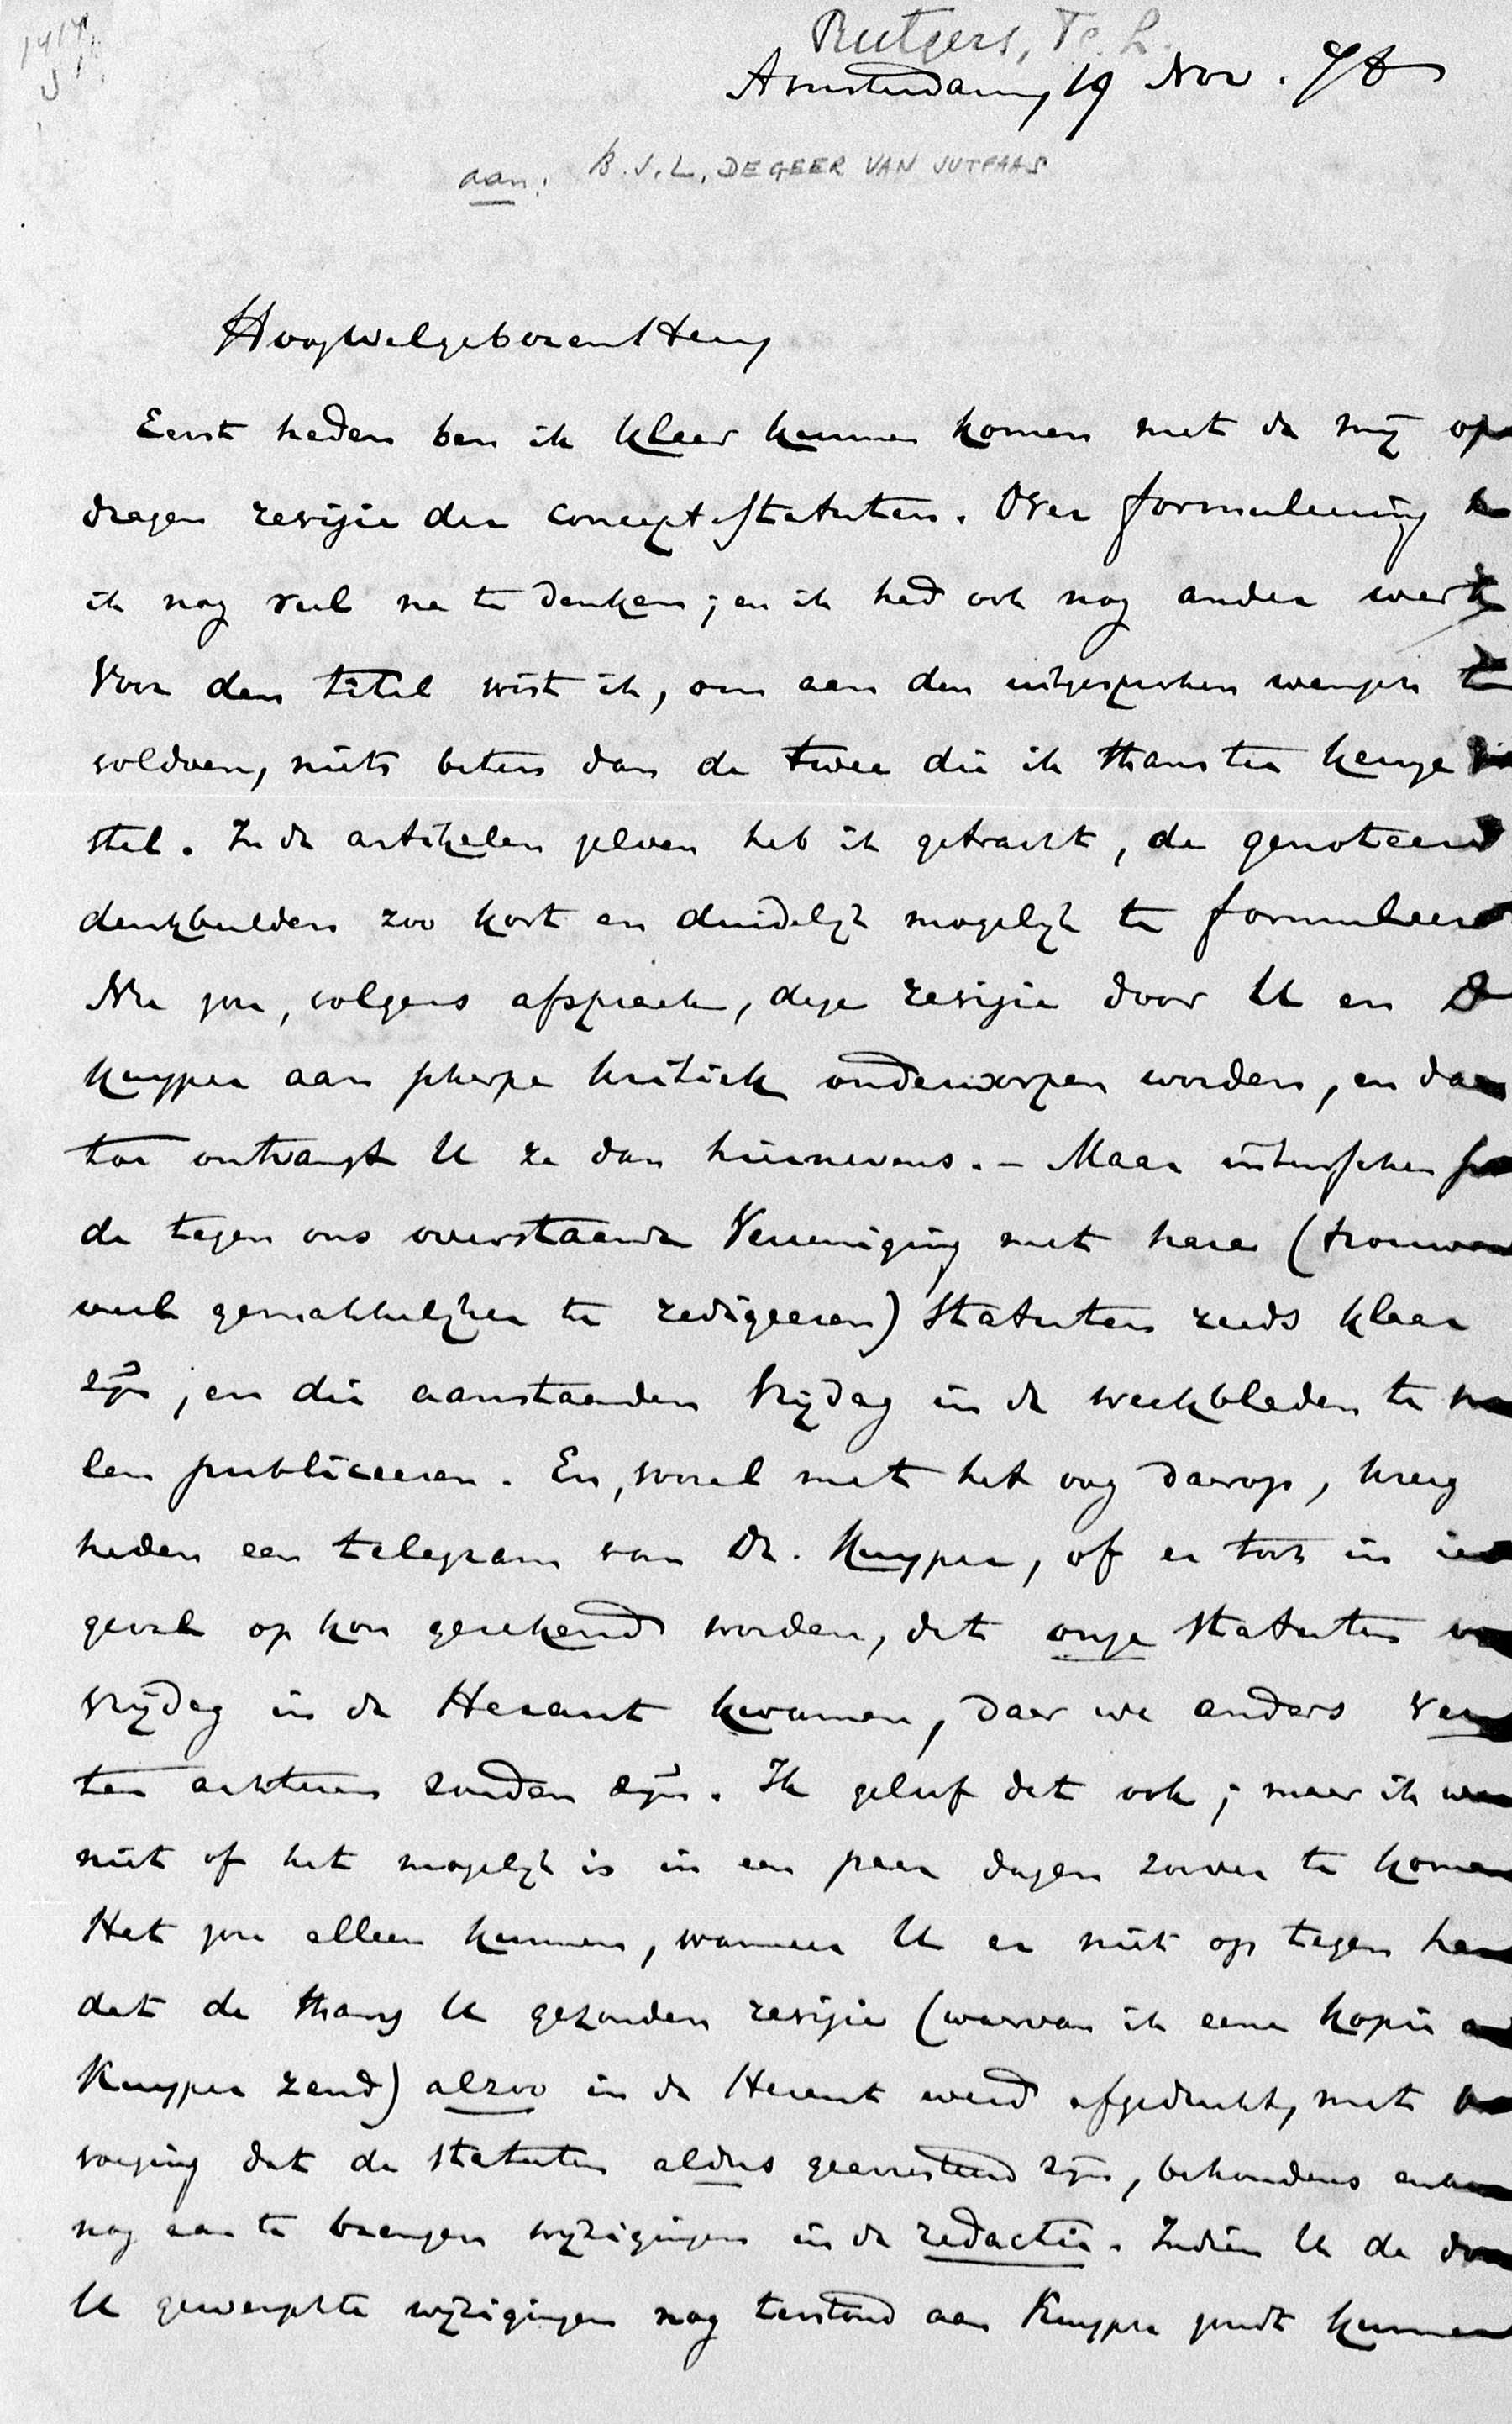 Rutgers, F. L.
Amsterdam, 19 Nov. 78
aan: B.J.L. DE GEER VAN JUTFAAS
Hoogwelgeboren Heer,
Eerst heden ben ik klaar kunnen komen met de mij op
dragen revisie der concept-statuten. Over formuleering
ik nog veel na te denken; en ik had ook nog ander werk
Voor den titel wist ik, om aan den uitgesproken wensch te
voldoen, niets beters dan de twee die ik thans ter keuze
stel. In de artikelen zelven heb ik getracht, de genoteerd
denkbeelden zoo kort en duidelijk mogelijk te formuleer
Nu zou, volgens afspraak, deze revisie door U en Dr
Kuyper aan scherpe kritiek onderworpen worden, en daar
toe ontvangt U ze dan hiernevens. – Maar intusschen
de tegen ons overstaande Vereeniging met hare (trouwens
veel gemakkelijker te redigeeren) Statuten reeds klaar
zijn, en die aanstaanden Vrijdag in de weekbladen te
len publiceeren. En, vooral met het oog daarop, kreeg
heden een telegram van Dr. Kuyper, of er toch in
geval op kon gerekend worden, dat onze Statuten
vrijdag in de Heraut kwamen, daar we anders ver
ten achteren zouden zijn. Ik geloof dat ook; maar ik
niet of het mogelijk is in een paar dagen zoover te komen
Het zou alleen kunnen, wanneer U er niet op tegen
dat de thans U gezonden revisie (waarvan ik eene kopie
Kuyper zend) alzoo in de Heraut werd afgedrukt, met
voeging dat de statuten aldus gearresteerd zijn, behoudens
nog aan te brengen wijzigingen in de redactie. Indien U de door
U gewenschte wijzigingen nog terstond aan Kuyper zoudt kunnen